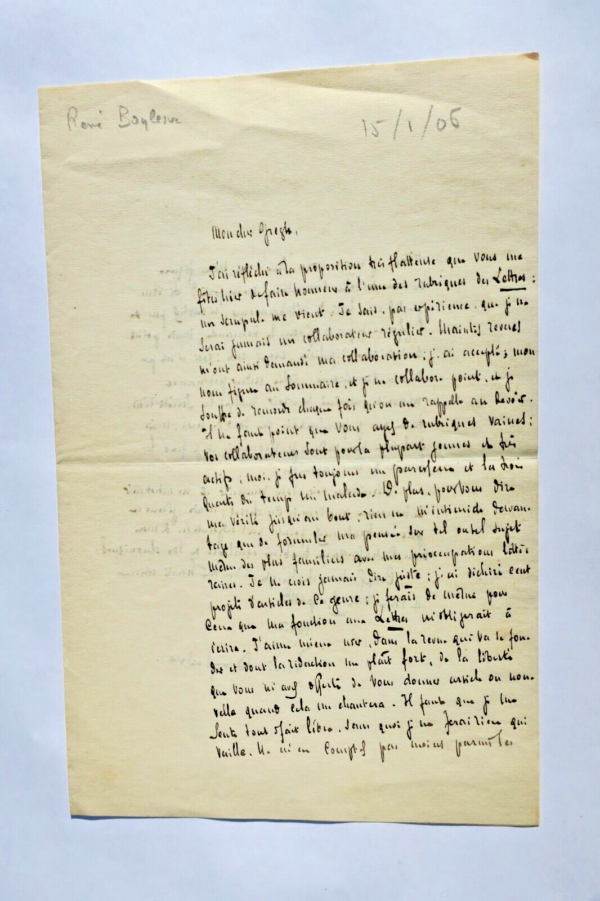 René Boylesve
15/1/06
Mon cher Gregh,
J'ai réfléchi à la proposition très flatteuse que vous me
fîtes hier de faire honneur à l'une des rubriques des Lettres :
un scrupule me vient. Je sais, par expérience, que je ne
serai jamais un collaborateur régulier. Maintes revues
m'ont ainsi demandé ma collaboration ; j'ai accepté ; mon
nom figure au sommaire, et je ne collabore point, et je
souffre de remords chaque fois qu'on me rappelle au devoir.
Il ne faut point que vous ayez de rubriques vaines ;
vos collaborateurs sont pour la plupart jeunes et très
actifs, moi, je fus toujours un paresseux et les trois
quarts du temps un malade. De plus, pour vous dire
ma vérité jusqu'au bout, rien ne m'intimide davan-
tage que de formuler ma pensée sur tel ou tel sujet
même des plus familiers avec mes préoccupations litté-
raires. Je ne crois jamais dire juste ; j'ai déchiré cent
projets d'articles de ce genre ; je ferais de même pour
ceux que ma fonction aux Lettres m'obligerait à
écrire. J'aime mieux user, dans la revue qui va se fon-
der et dont la rédaction me plaît fort, de la liberté
que vous m'avez offerte de vous donner article ou nou-
velle quand cela me chantera. Il faut que je me
sente tout à fait libre, sans quoi je ne ferai rien qui
vaille. Ne m'en comptez pas moins parmi les